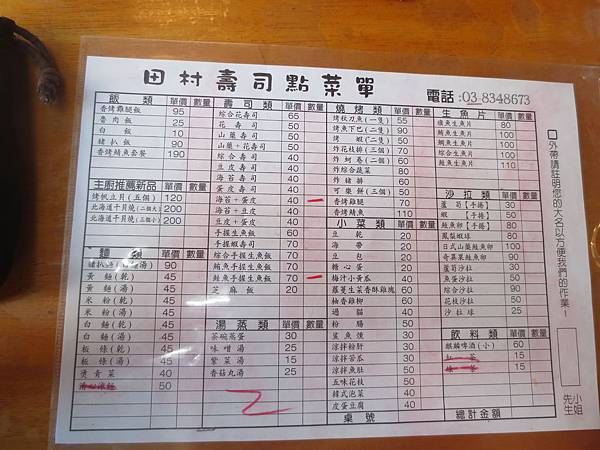 田村壽司點菜單
電話:03-8348673
飯類 單價 數量
香烤雞腿飯 95
魯肉飯 25
白飯 10
豬扒飯 90
香烤鯖魚套餐 190
主廚推薦新品 單價 數量
烤帆立貝(五個) 120
北海道干貝燒(二個大) 200
北海道干貝燒(三個小) 200
麵類 單價 數量
90
黃麵(乾) 45
黃麵(湯) 45
米粉(乾) 45
米粉(湯) 45
白麵(乾) 45
白麵(湯) 45
板條(乾) 45
板條(湯) 45
燙青菜 40
50
壽司類 單價 數量
綜合花壽司 65
花壽司 50
山藥壽司 70
山藥+花壽司 60
綜合壽司 50
豆皮壽司 50
海苔壽司 50
蛋皮壽司 50
海苔+蛋皮 50
海苔+豆皮 50
豆皮+蛋皮 50
手握生魚飯 60
手握蝦壽司 70
綜合手握生魚飯 70
鮭魚手握生魚飯 70
芝麻飯 20
湯蒸類 單價 數量
茶碗蒸蛋 30
味噌湯 25
紫菜湯 15
香菇丸湯 25
燒烤類 單價 數量
烤秋刀魚(一隻) 55
烤魚下巴(二隻) 90
烤蝦(二隻) 50
炸花枝排(三個) 70
炸蚵卷(二個) 60
炸綜合蔬菜 80
炸豬排 60
可樂餅(三個) 50
香烤雞腿 70
香烤鯖魚 110
小菜類 單價 數量
豆乾 20
海帶 20
豆包 20
糖心蛋 20
梅汁小黃瓜 40
羅蔓生菜香酥雞塊 60
柚香雞柳 60
過貓 40
粉腸 50
鯊魚燻 30
涼拌粉肝 30
涼拌苦瓜 30
涼拌魚肚 50
五味花枝 50
韓式泡菜 40
皮蛋豆腐 40
桌號
生魚片 單價 數量
旗魚生魚片 80
鮪魚生魚片 100
鯛魚生魚片 100
綜合生魚片 100
鮭魚生魚片 110
沙拉類 單價 數量
蘆筍【手捲】 30
蝦【手捲】 50
鮭魚卵【手捲】 80
鳳梨蝦球 80
日式山藥鮭魚卵 100
奇異果鮭魚卵 90
蘆筍沙拉 50
魚蛋沙拉 50
綜合沙拉 90
花枝沙拉 50
沙拉球 25
飲料類 單價 數量
麒麟啤酒(小) 60
紅茶 15
綠茶 15
總計金額
□外帶請註明您的大名以方便我們的作業!
小姐
先生